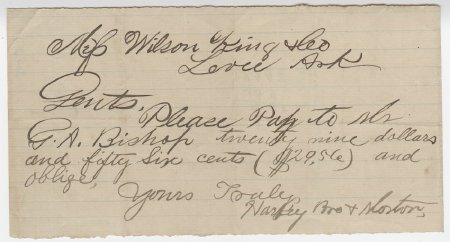 Wilson King & Co
Levee Ark
Gents,
Please Pay to Mr
G. A. Bishop twenty nine dollars
and fifty Six cents ($29,56) and
oblige,
Yours Truly
Bro & Morton